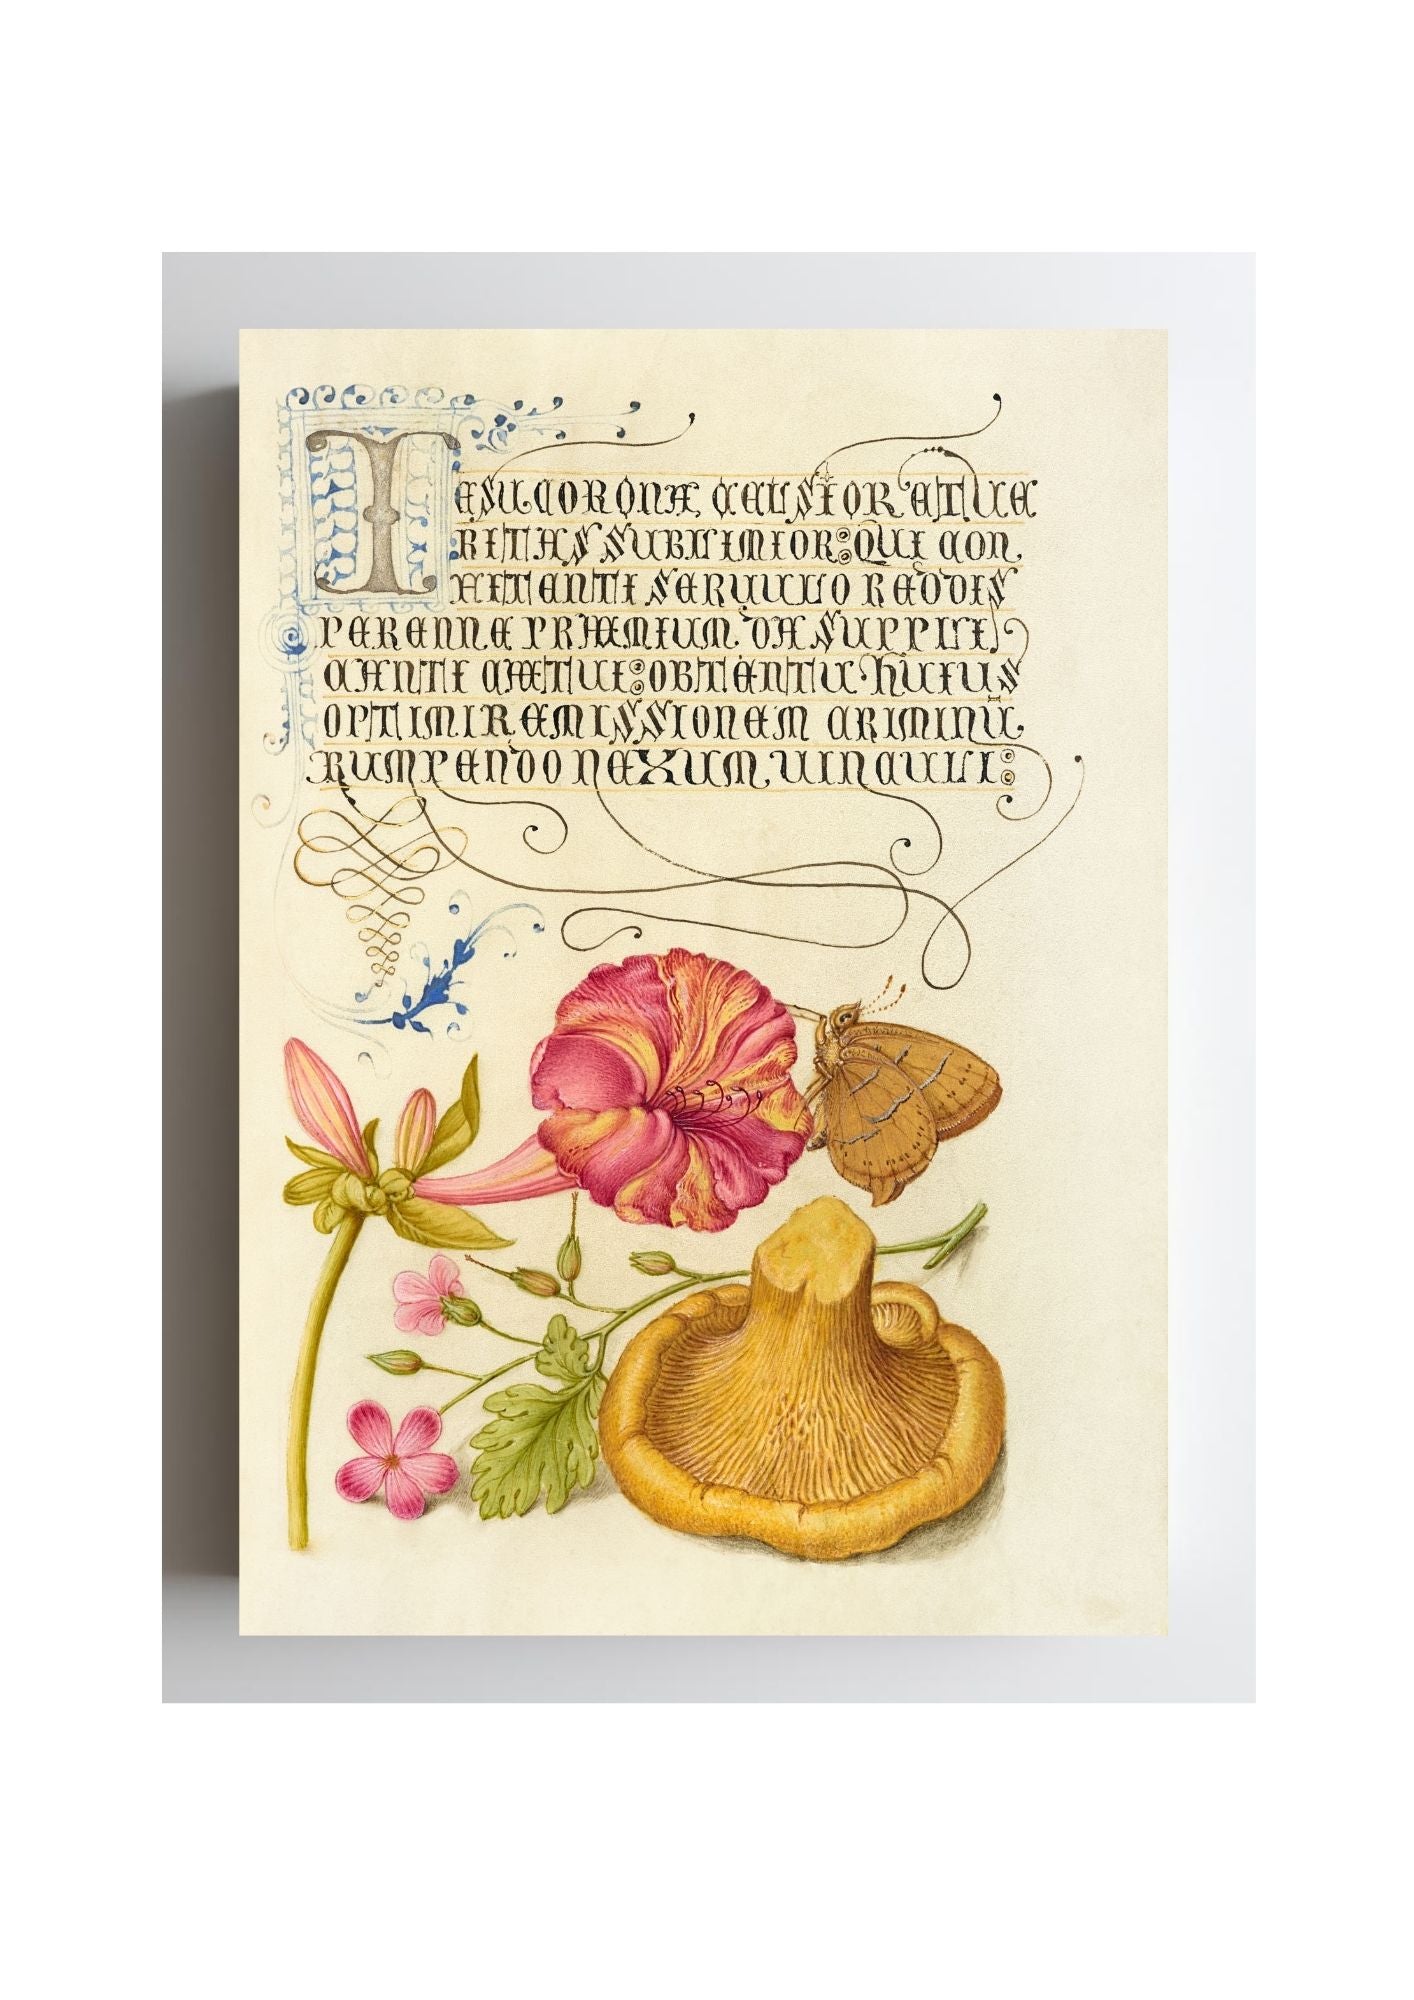 IESU CORONA CELSIOR ET UE
RITAS SUBLIMIOR: QUI CON
FITENTI SERUULO REDDIS
PERENNE PRÆMIUM. DA SUPPLI
CANTI CÆTUI: OBTENTU HUIUS
OPTIMI REMISSIONEM CRIMINŪ
RUMPENDO NEXUM UINCULI: